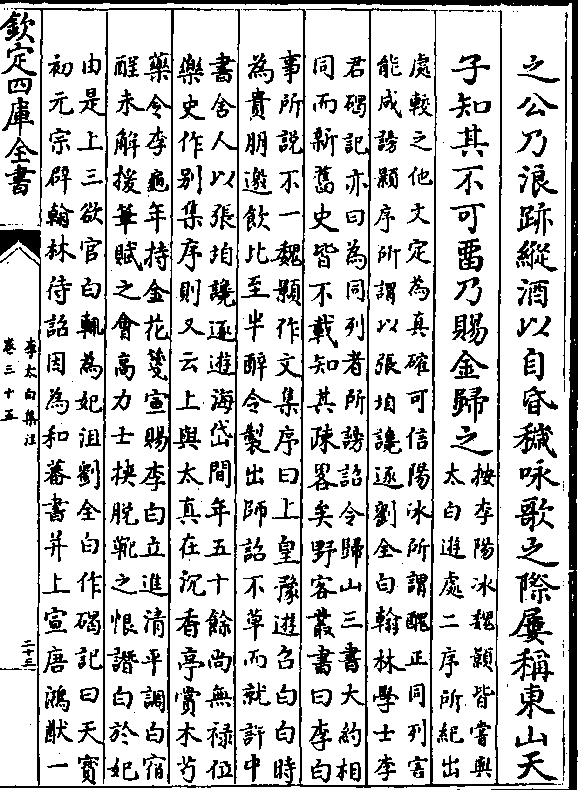 之公乃浪跡縱酒以自昏穢咏歌之際屢稱東山天
子知其不可畱乃賜金歸之
按李陽冰魏顥皆嘗與
太白遊處二序所紀出
處較之他文定為真確可信陽冰所謂醜正同列害
能成謗顥序所謂以張垍讒逐劉全白翰林學士李
君碣記亦曰為同列者所謗詔令歸山三書大約相
同而新舊史皆不載知其疎畧矣野客叢書曰李白
事所説不一魏顥作文集序曰上皇豫遊召白白時
為貴朋邀飲比至半醉令製出師詔不草而就許中
書舍人以張垍讒逐遊海岱間年五十餘尚無祿位
樂史作别集序則又云上與太真在沉香亭賞木芍
藥令李龜年持金花箋宣賜李白立進清平調白宿
酲未解援筆賦之會高力士挾脱靴之恨譖白於妃
由是上三欲官白輒為妃沮劉全白作碣記曰天寶
初元宗辟翰林待詔因為和蕃書并上宣唐鴻猷一
欽定四庫全書
李太白集注
卷三十五
二十三